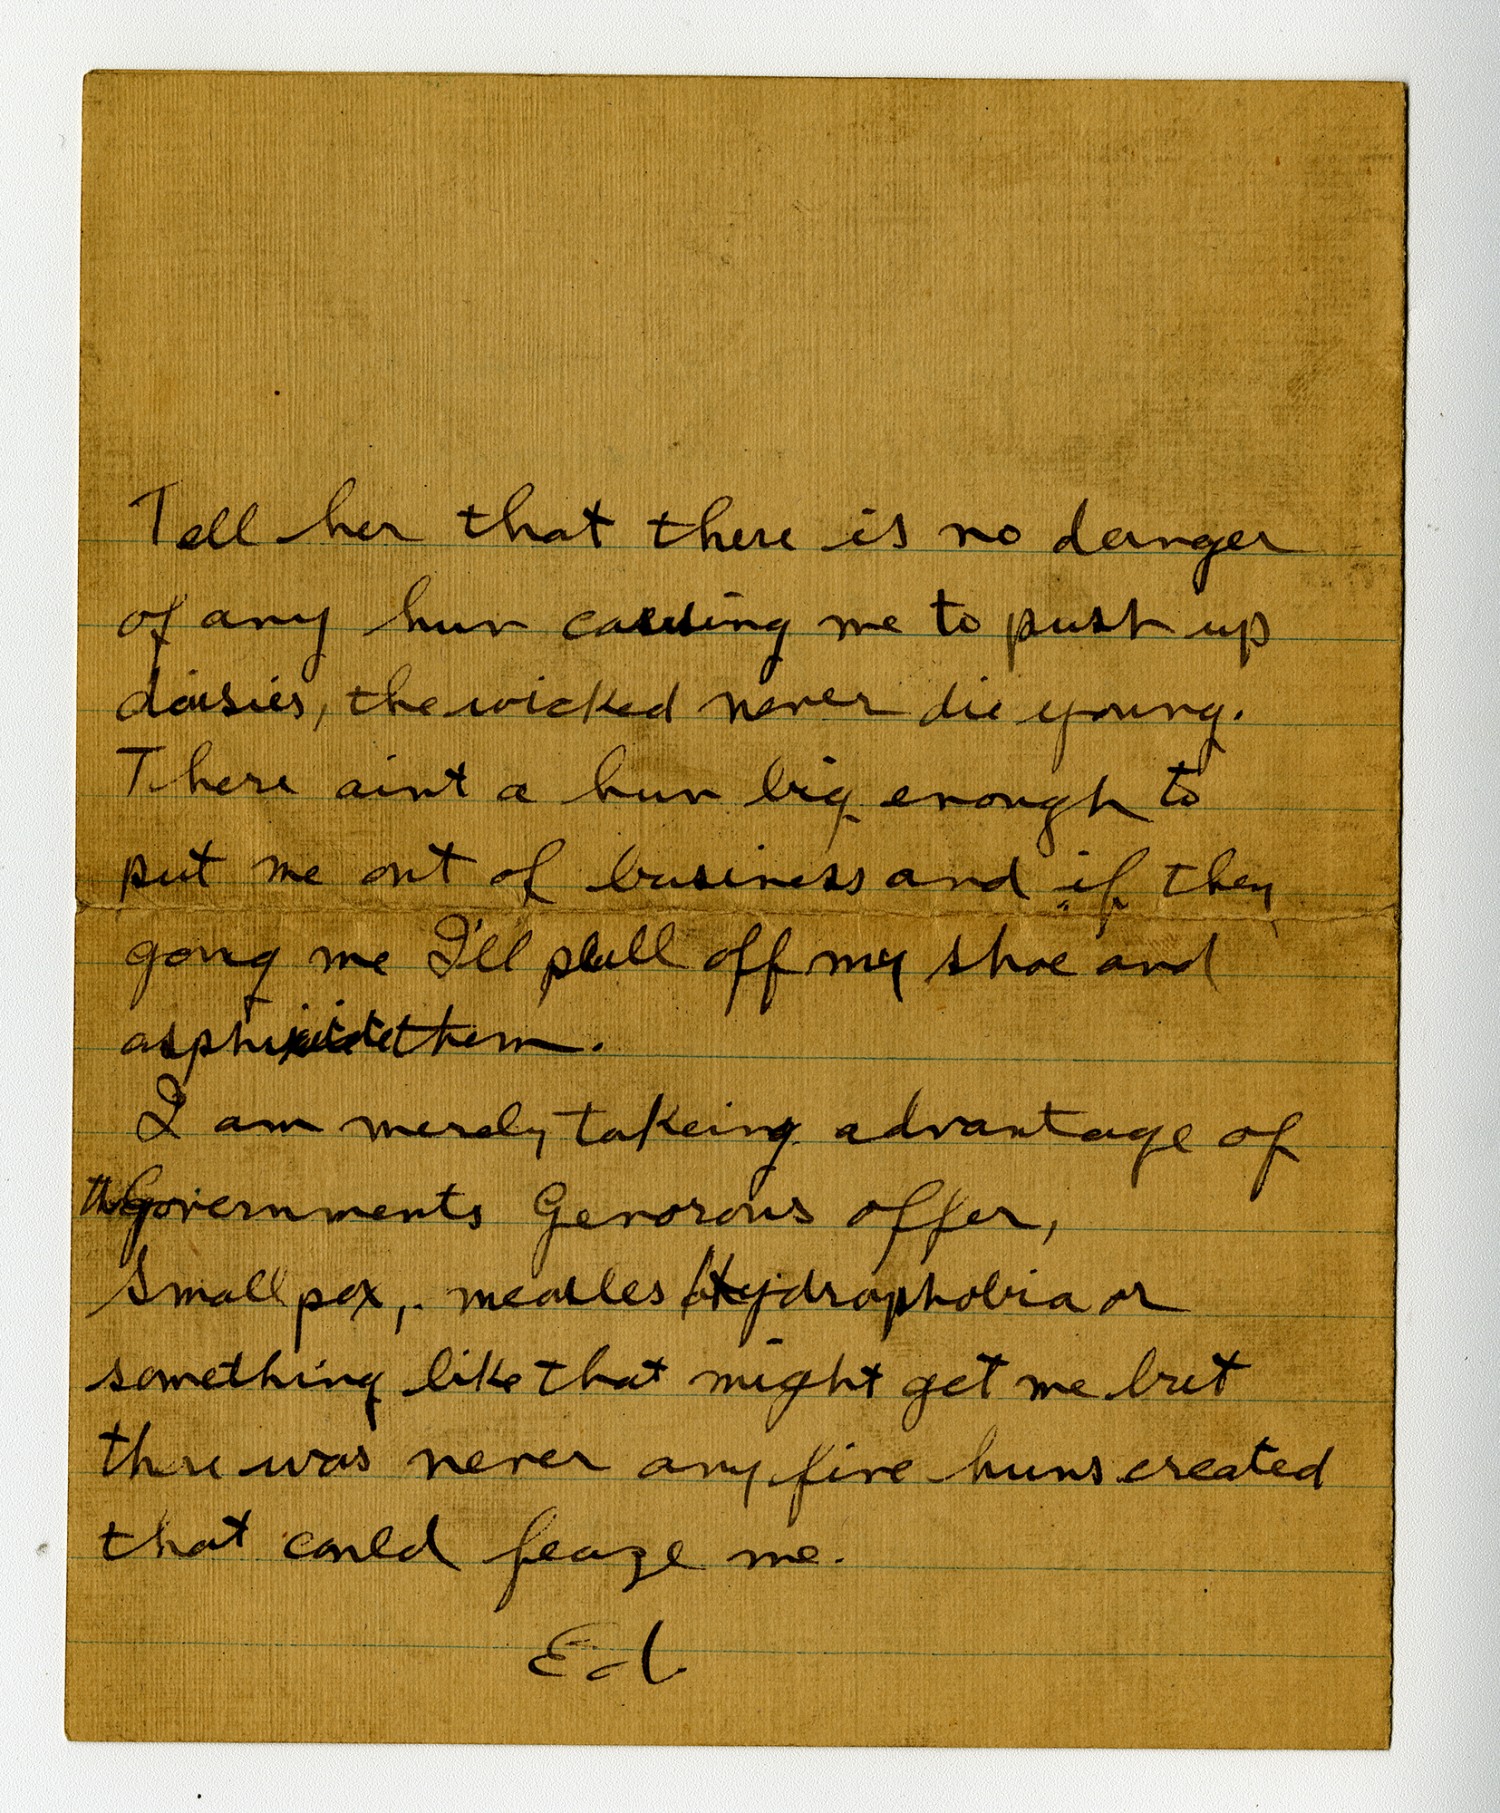 Tell her that there is no danger
of any hun causing me to push up
daisies, the wicked never die young.
There aint a hun big enough to
put me out of business and if they
gong me I'll pull off my shoe and
asphixiate them.
I am merely takeing advantage of
the Governments Generous offer,
Small pox, measles Hydrophobia or
something like that might get me but
there was never any five huns created
that could feaze me.
Ed.